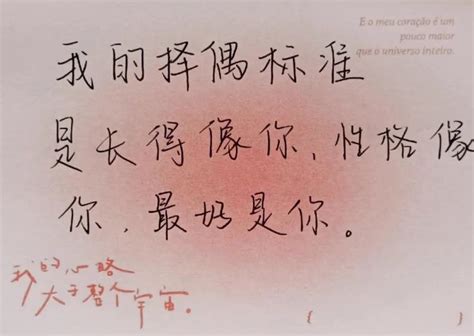 E o meu coração é um
pouco maior
que o universo inteiro.
我的择偶标准
是长得像你、性格像
你，最好是你。
我的心略
大于整个宇宙。
{ }